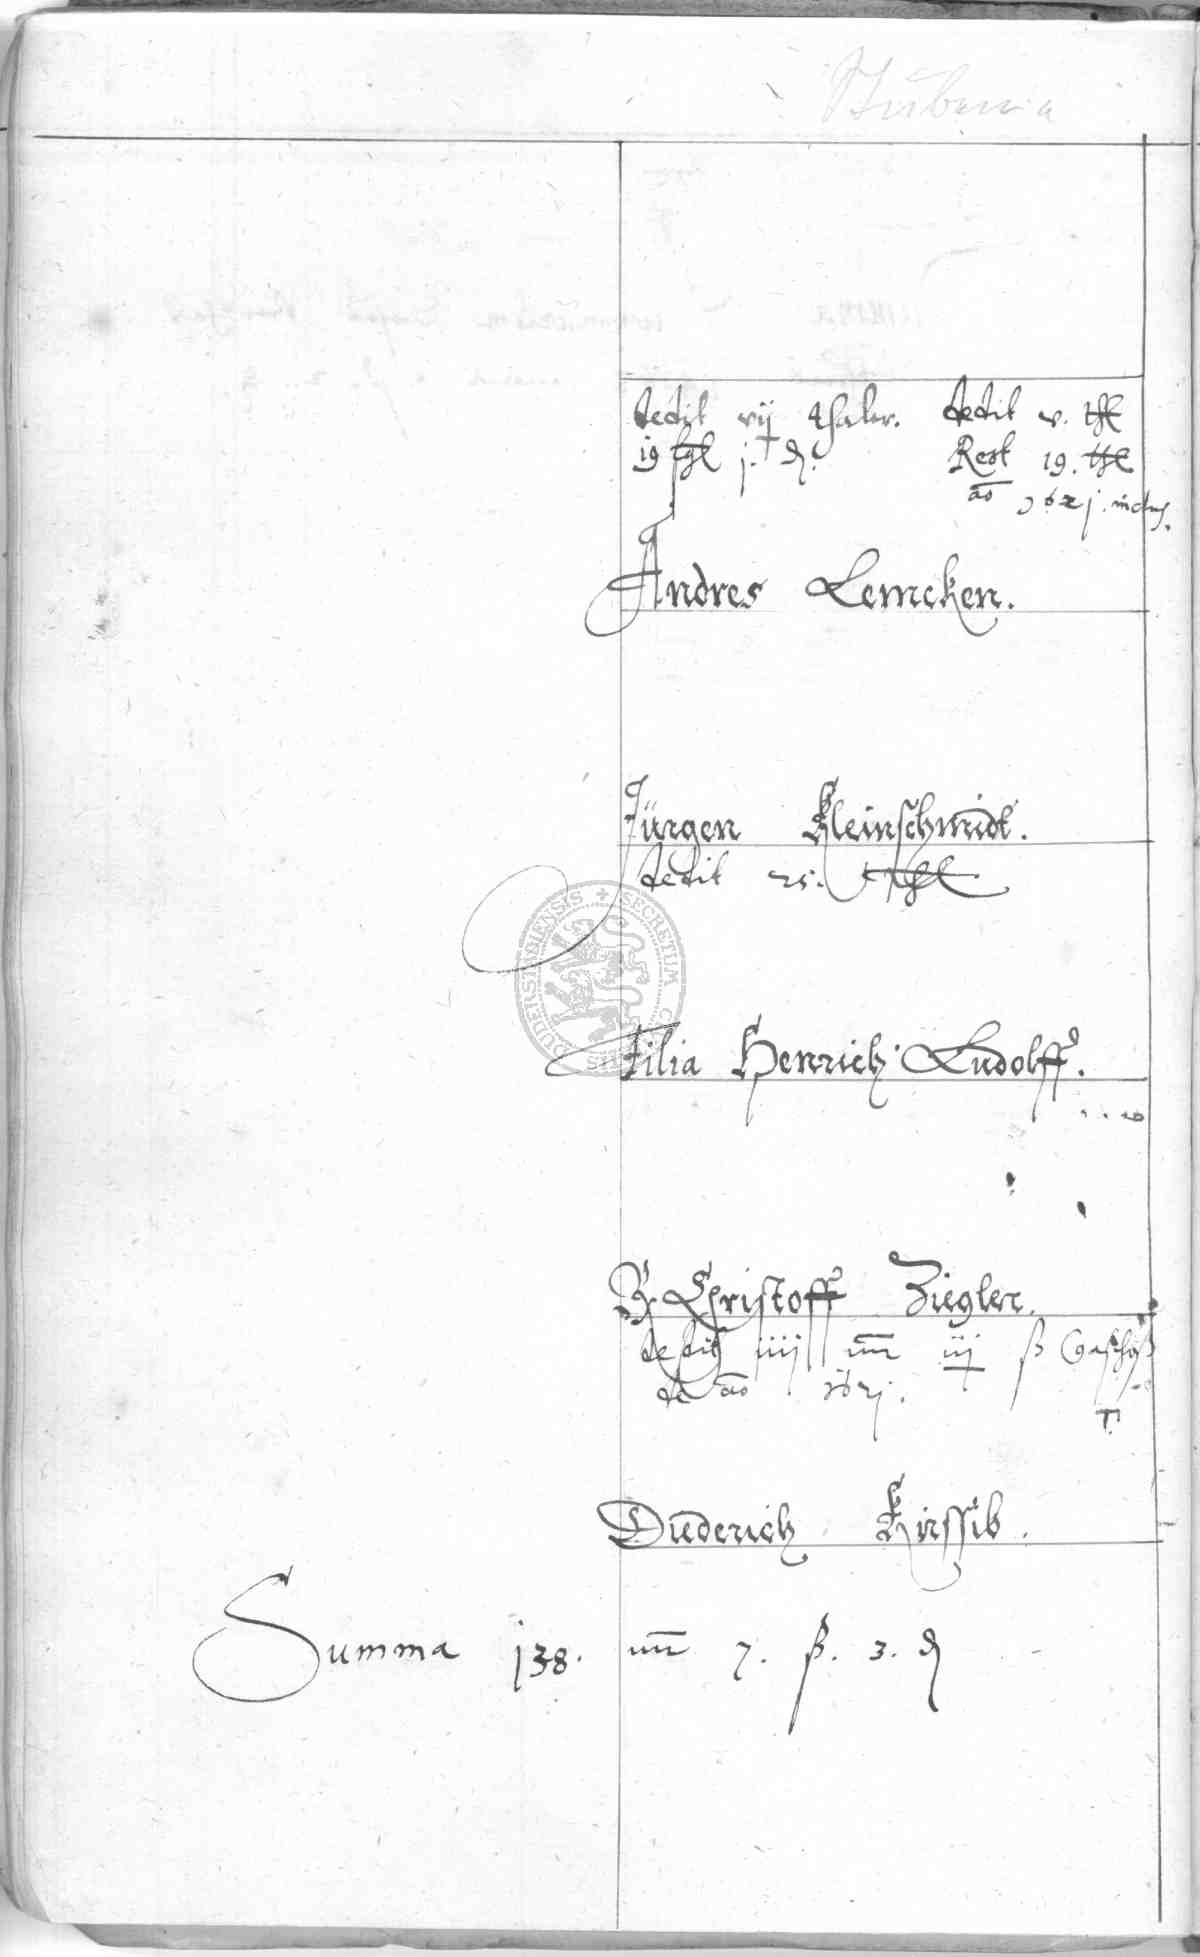 dedit vij thaler. dedit v. thl
19 ßgl j. d. Rest 19. thl
ao 1621. inclus.
Andres Lemcken.
Jürgen Kleinschmidt.
dedit 25. thl
Filia Henrich Ludolff.
Christoff Ziegler.
dedit iiij iij ß
de ao 1621.
Diederich Kirssib.
Summa 138. 7. ß. 3. d
SECRETUM
DUDERSTADIENSIS